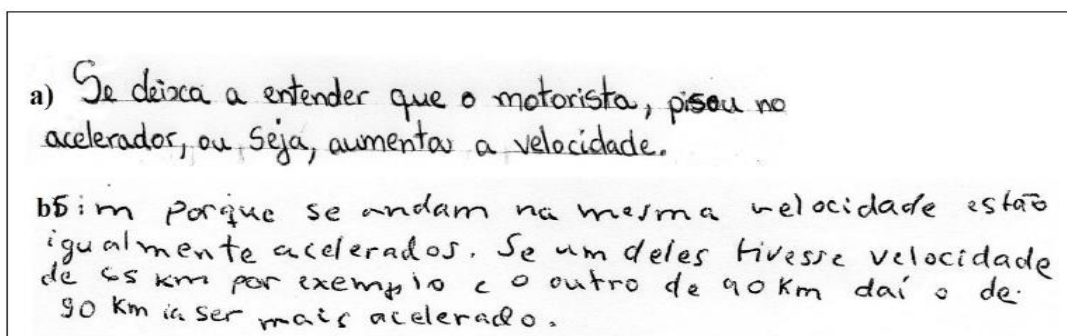 a) Se deixa a entender que o motorista, pisou no
acelerador, ou seja, aumentou a velocidade.
b) Sim porque se andam na mesma velocidade estão
igualmente acelerados. Se um deles tivesse velocidade
de 65 km por exemplo e o outro de 90 km daí o de
90 km ia ser mais acelerado.